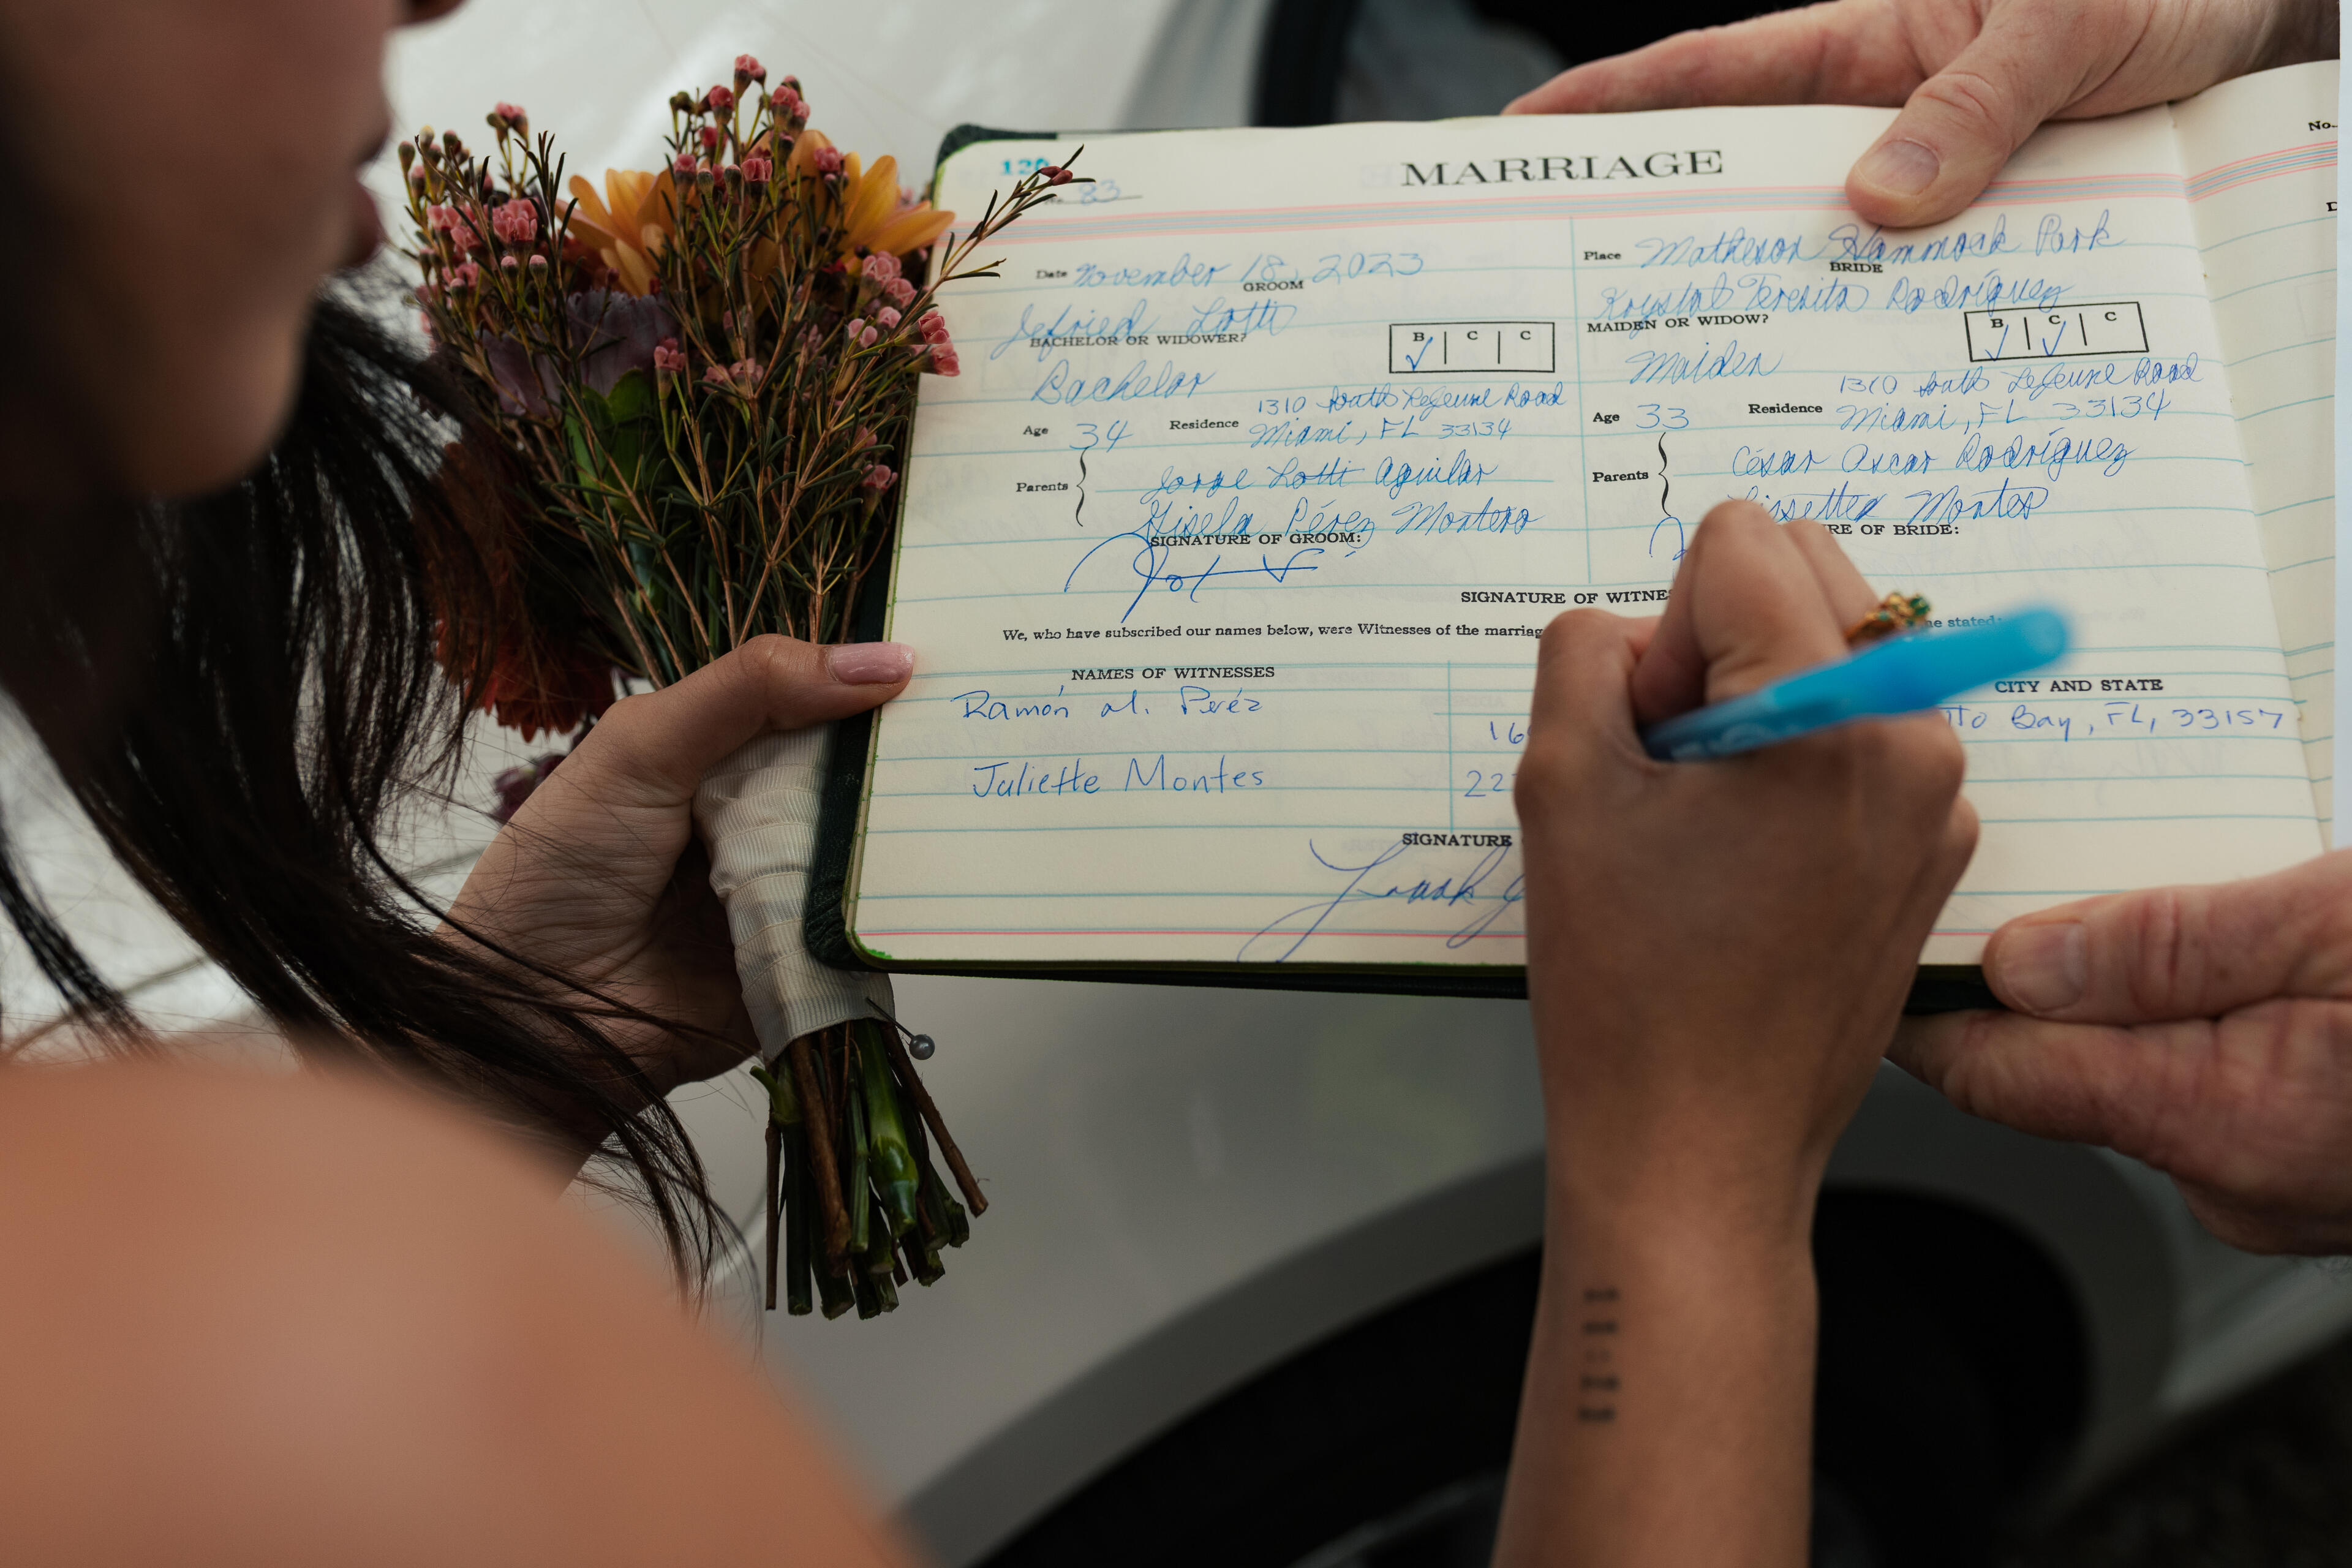 MARRIAGE
No.
83
Date November 18, 2023
Place Matheson Hammock Park
GROOM
BRIDE
Jefried Lotti
Krystal Teresita Rodríguez
BACHELOR OR WIDOWER?
B C C
MAIDEN OR WIDOW?
B C C
Bachelor
Maiden
1310 South LeJeune Road
1310 South LeJeune Road
Age 34 Residence Miami, FL 33134
Age 33 Residence Miami, FL 33134
Parents
Jorge Lotti Aguilar
Gisela Pérez Montero
Parents
César Oscar Rodríguez
Montes
SIGNATURE OF GROOM:
RE OF BRIDE:
SIGNATURE OF WITNE
We, who have subscribed our names below, were Witnesses of the marriag
stated:
NAMES OF WITNESSES
CITY AND STATE
Ramón Peréz
16
Bay, FL, 33157
Juliette Montes
22
SIGNATURE